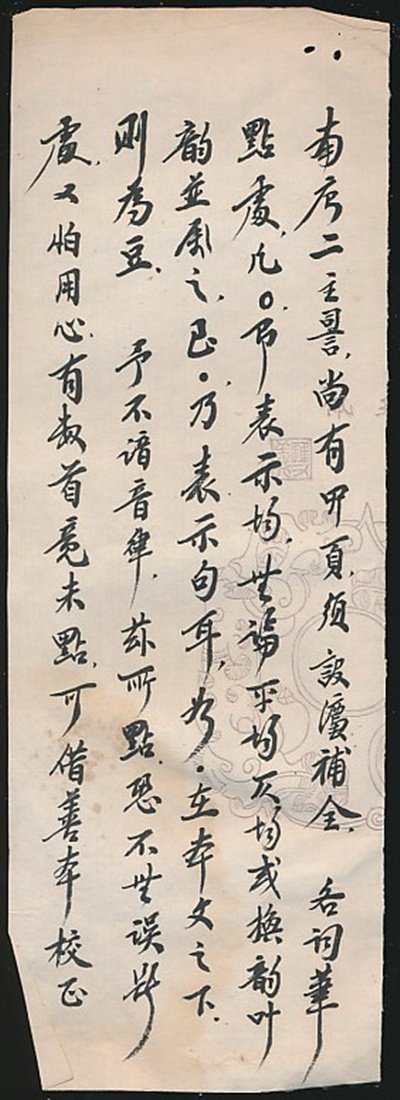 南唐二主䛐,尚有頁,須設灋補全. 各詞筆
點處,凡○即表示均,無論平均仄均或換韵叶
韵並屬之,㠯。乃表示句耳,為·在本文之下,
則為豆. 予不諳音律,茲所點,恐不無誤斷
處,又怕用心,有數首竟未點,可借善本校正